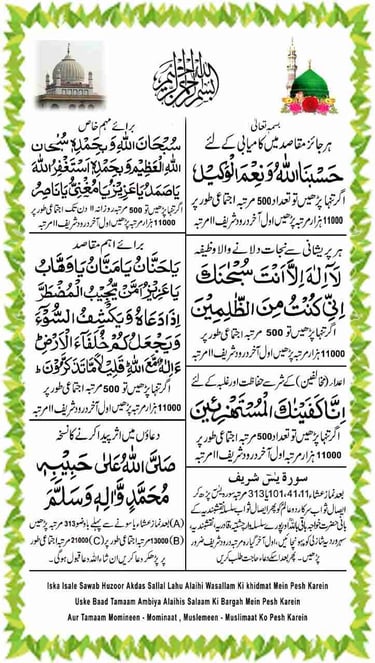 بسم الله الرحمن الرحيم
بسمہ تعالیٰ
ہر جائز مقاصد میں کامیابی کے لئے
حَسْبُنَا اللهُ وَنِعْمَ الْوَكِيْل
اگر تنہا پڑھیں تو تعداد 500 مرتبہ اجتماعی طور پر
11000 ہزار مرتبہ پڑھیں اول آخر درود شریف ۱۱ مرتبہ
ہر پریشانی سے نجات دلانے والا وظیفہ
لَآ اِلٰهَ اِلَّا اَنْتَ سُبْحٰنَكَ
اِنِّیْ كُنْتُ مِنَ الظّٰلِمِيْنَ
اگر تنہا پڑھیں تو 500 مرتبہ اجتماعی طور پر
11000 ہزار مرتبہ پڑھیں اول آخر درود شریف ۱۱ مرتبہ
اعداء (مخالفین) کے شر سے حفاظت اور غلبہ کے لئے
اِنَّا كَفَيْنٰكَ الْمُسْتَهْزِئِيْنَ
اگر تنہا پڑھیں تو تعداد 500 مرتبہ اجتماعی طور پر
11000 ہزار مرتبہ پڑھیں اول آخر درود شریف ۱۱ مرتبہ
سورۃ یٰسٓ شریف
بعد نماز عشاء 11، 41، 101 یا 313 مرتبہ پڑھ کر
برائے مہم خاص
سُبْحَانَ اللهِ وَبِحَمْدِهٖ سُبْحَانَ
اللهِ الْعَظِيْمِ وَبِحَمْدِهٖ اَسْتَغْفِرُ اللهَ
يَاصَمَدُ يَاعَزِيْزُ يَامُغْنِیُ يَانَاصِرُ
اگر تنہا پڑھیں تو 500 مرتبہ روزانہ ۱۱ دن تک اجتماعی طور پر
11000 ہزار مرتبہ پڑھیں اول آخر درود شریف ۱۱ مرتبہ
برائے اہم مقاصد
يَاحَنَّانُ يَامَنَّانُ يَاوَهَّابُ
يَاعَزِيْزُ اَمَّنْ يُّجِيْبُ الْمُضْطَرَّ
اِذَا دَعَاهُ وَيَكْشِفُ السُّوْٓءَ
وَيَجْعَلُكُمْ خُلَفَآءَ الْاَرْضِ
ءَاِلٰهٌ مَّعَ اللهِ قَلِيْلًا مَّا تَذَكَّرُوْنَ
اگر تنہا پڑھیں تو 500 مرتبہ اجتماعی طور پر
11000 ہزار مرتبہ پڑھیں اول آخر درود شریف ۱۱ مرتبہ
دعاؤں میں اثر پیدا کرنے کا نسخہ
صَلَّی اللهُ عَلٰی حَبِيْبِهٖ
مُحَمَّدٍ وَّاٰلِهٖ وَسَلَّمَ
(A) بعد نماز عشاء یا سونے سے پہلے باوضو 313 مرتبہ پڑھیں
(B) 13000 مرتبہ (C) 21000 مرتبہ اجتماعی طور
پر پڑھ کر دعا کریں ان شاء اللہ دعا قبول ہوگی۔
Iska Isale Sawab Huzoor Akdas Sallal Lahu Alaihi Wasallam Ki khidmat Mein Pesh Karein
Uske Baad Tamaam Ambiya Alaihis Salaam Ki Bargah Mein Pesh Karein
Aur Tamaam Momineen - Mominaat , Muslemeen - Muslimaat Ko Pesh Karein